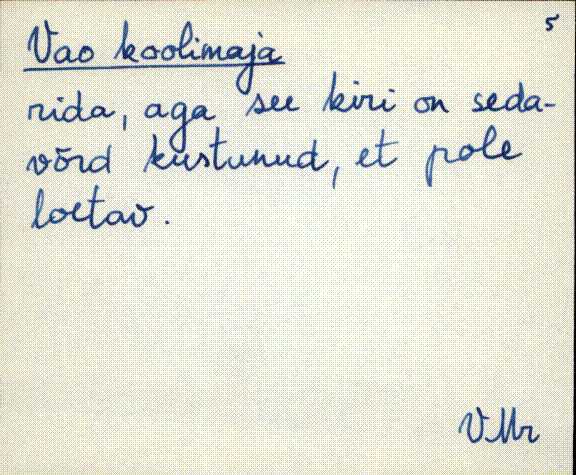 5
Vao koolimaja
rida, aga see kiri on seda-
võrd kustunud, et pole
loetav.
VMr